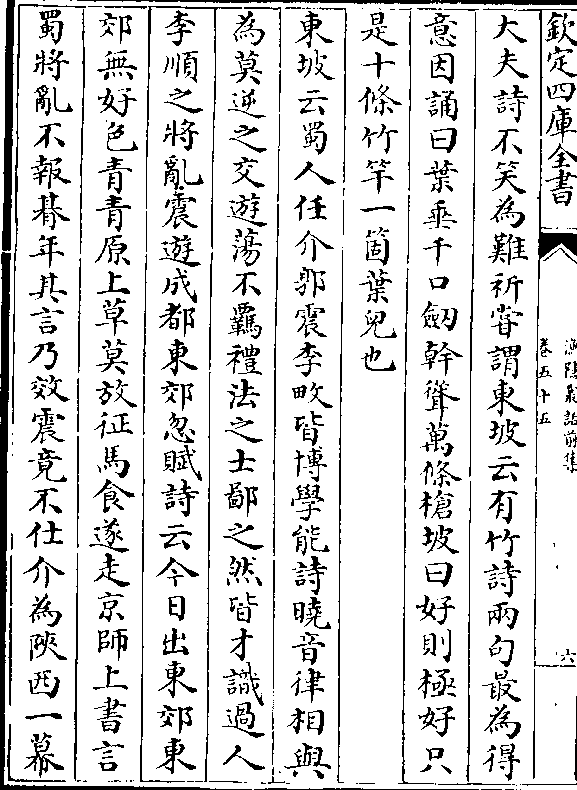 欽定四庫全書
漁隱叢話前集
卷五十五
六
大夫詩不笑為難祈嘗謂東坡云有竹詩兩句最為得
意因誦曰葉垂千口劒幹聳萬條槍坡曰好則極好只
是十條竹竿一箇葉兒也
東坡云蜀人任介郭震李畋皆博學能詩曉音律相與
為莫逆之交遊蕩不羈禮法之士鄙之然皆才識過人
李順之將亂震遊成都東郊忽賦詩云今日出東郊東
郊無好色青青原上草莫放征馬食遂走京師上書言
蜀將亂不報朞年其言乃效震竟不仕介為陝西一幕